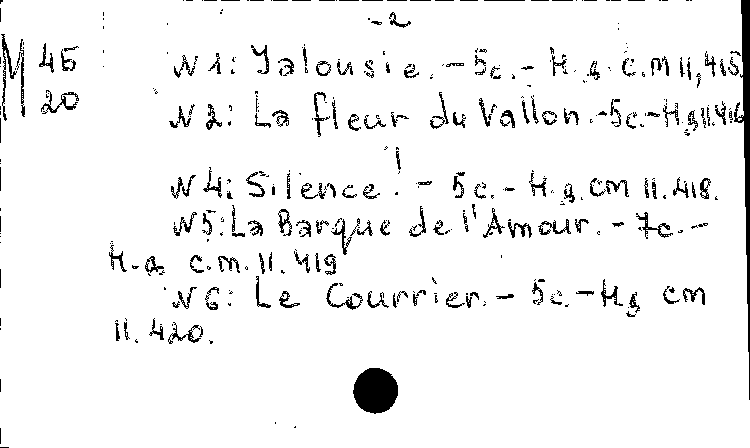 -2
M 45
20
N 1: Jalousie. - 5c. - Н.д. c.m 11,415.
N 2: La fleur du Vallon. - 5c. - Н.д 11.416
N 4: Silence! - 5c. - Н.д. cm 11.418.
N 5: La Barque de l'Amour. - 7c. -
Н.д. c.m. 11.419
N 6: Le Courrier. - 5c. - Нд cm
11.420.